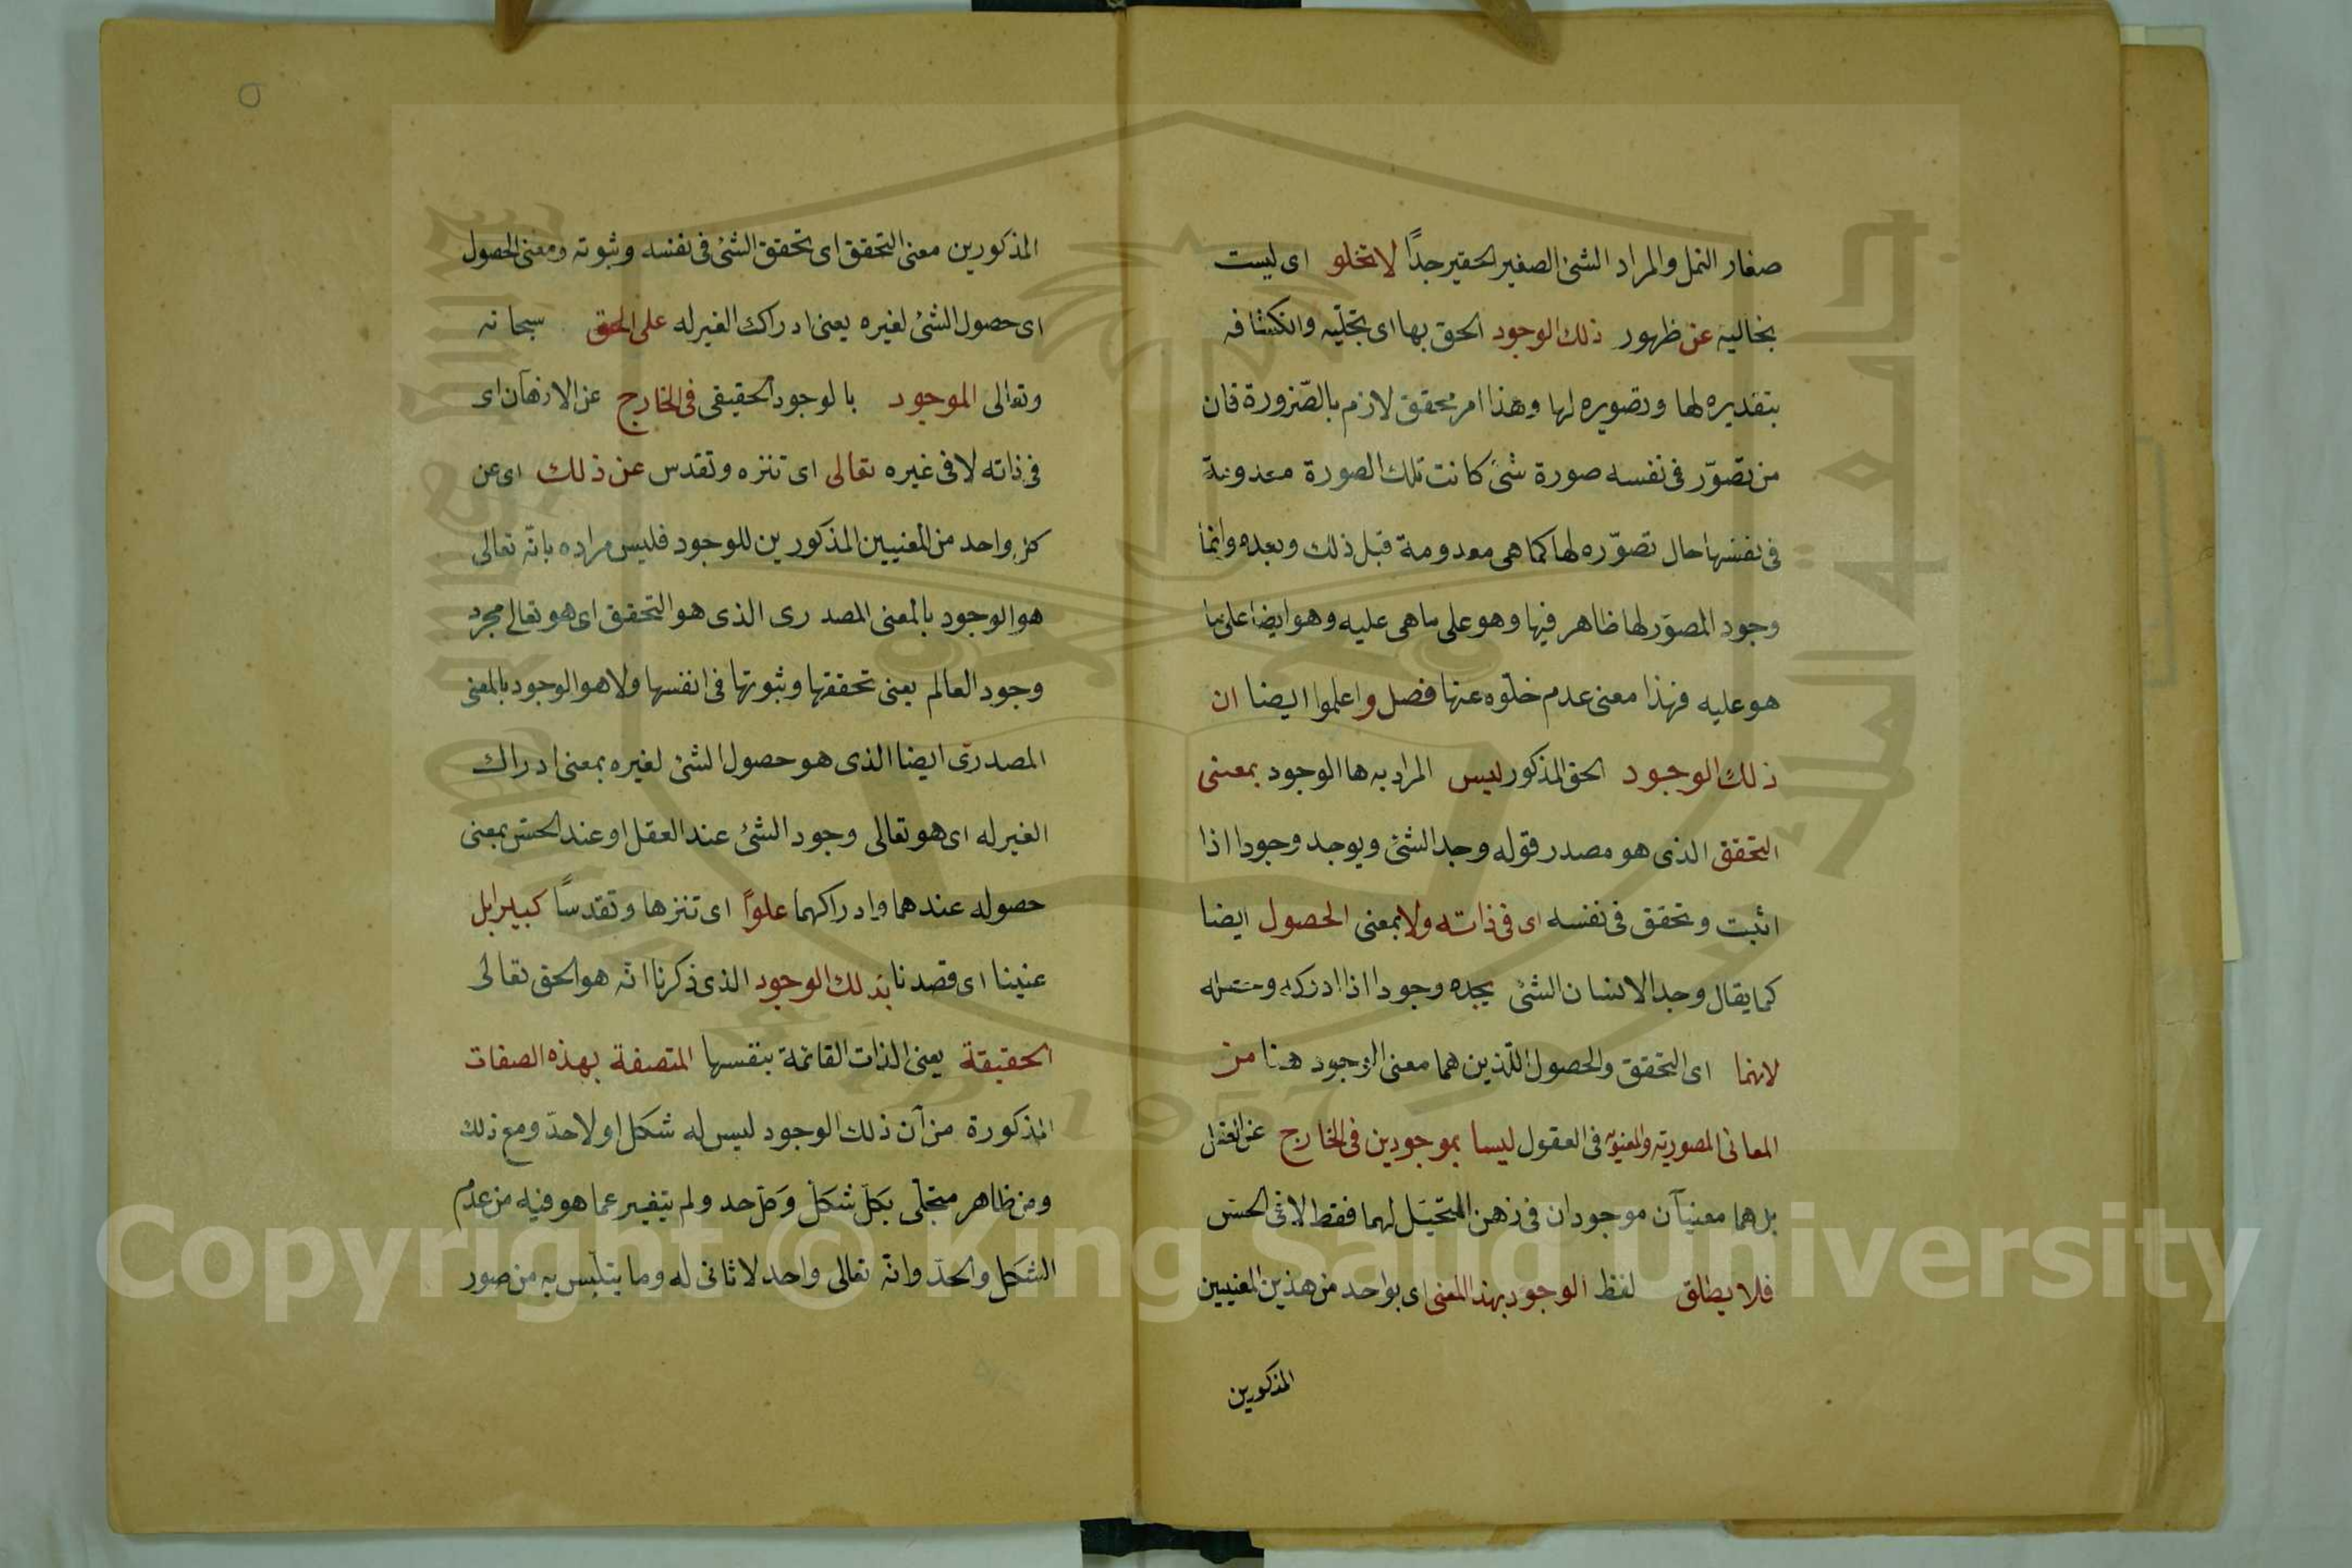 صغار النمل والمراد الشئ الصغير الحقير جدًا لا تخلو اى ليست
بخالية عن ظهور ذلك الوجود الحق بها اى تجلّيه وانكشافه
بتقديره لها وتصويره لها وهذا امر محقق لازم بالضّرورة فان
من تصوّر فى نفسه صورة شئ كانت تلك الصورة معدومة
فى نفسها حال تصوّره لها كما هى معدومة قبل ذلك وبعده وانما
وجود المصوّر لها ظاهر فيها وهو على ما هى عليه وهو ايضا على ما
هو عليه فهذا معنى عدم خلوّه عنها فصل واعلموا ايضا ان
ذلك الوجود الحق المذكور ليس المراد به ها الوجود بمعنى
التحقق الذى هو مصدر قوله وجد الشئ ويوجد وجودا اذا
اثبت وتحقق فى نفسه اى فى ذاته ولا بمعنى الحصول ايضا
كما يقال وجد الانسان الشئ يجده وجودا اذا ادركه
لانهما اى التحقق والحصول اللّذين هما معنى الوجود هنا من
المعانى المصورية والمعنوية فى العقول ليسا بموجودين فى الخارج عن
بل هما معنيان موجودان فى ذهن المتخيّل لهما فقط لا فى الحسّ
فلا يطلق لفظ الوجود بهذا المعنى اى بواحد من هذين المعنيين
المذكورين
٥
المذكورين معنى التحقق اى تحقق الشئ فى نفسه وثبوته ومعنى الحصول
اى حصول الشئ لغيره يعنى ادراك الغير له على الحق سبحانه
وتعالى الموجود بالوجود الحقيقى فى الخارج عن الاذهان اى
فى ذاته لا فى غيره تعالى اى تنزه وتقدس عن ذلك اى عن
كل واحد من المعنيين المذكورين للوجود فليس مراده بانّه تعالى
هو الوجود بالمعنى المصدرى الذى هو التحقق اى هو تعالى مجرد
وجود العالم يعنى تحققها وثبوتها فى انفسها ولا هو الوجود بالمعنى
المصدرىّ ايضا الذى هو حصول الشئ لغيره بمعنى ادراك
الغير له اى هو تعالى وجود الشئ عند العقل او عند الحسّ بمعنى
حصوله عندهما وادراكهما علوًّا اى تنزها وتقدسًا كبيرا بل
عنينا اى قصدنا بذلك الوجود الذى ذكرنا انّه هو الحق تعالى
الحقيقة يعنى الذات القائمة بنفسها المتصفة بهذه الصفات
المذكورة من ان ذلك الوجود ليس له شكل او لا حدّ ومع ذلك
ومن ظاهر متجلّى بكلّ شكل وكلّ حد ولم يتغير عما هو فيه من عدم
الشكل والحدّ وانّه تعالى واحد لا ثانى له وما يتلبس به من صور
Copyright © King Saud University